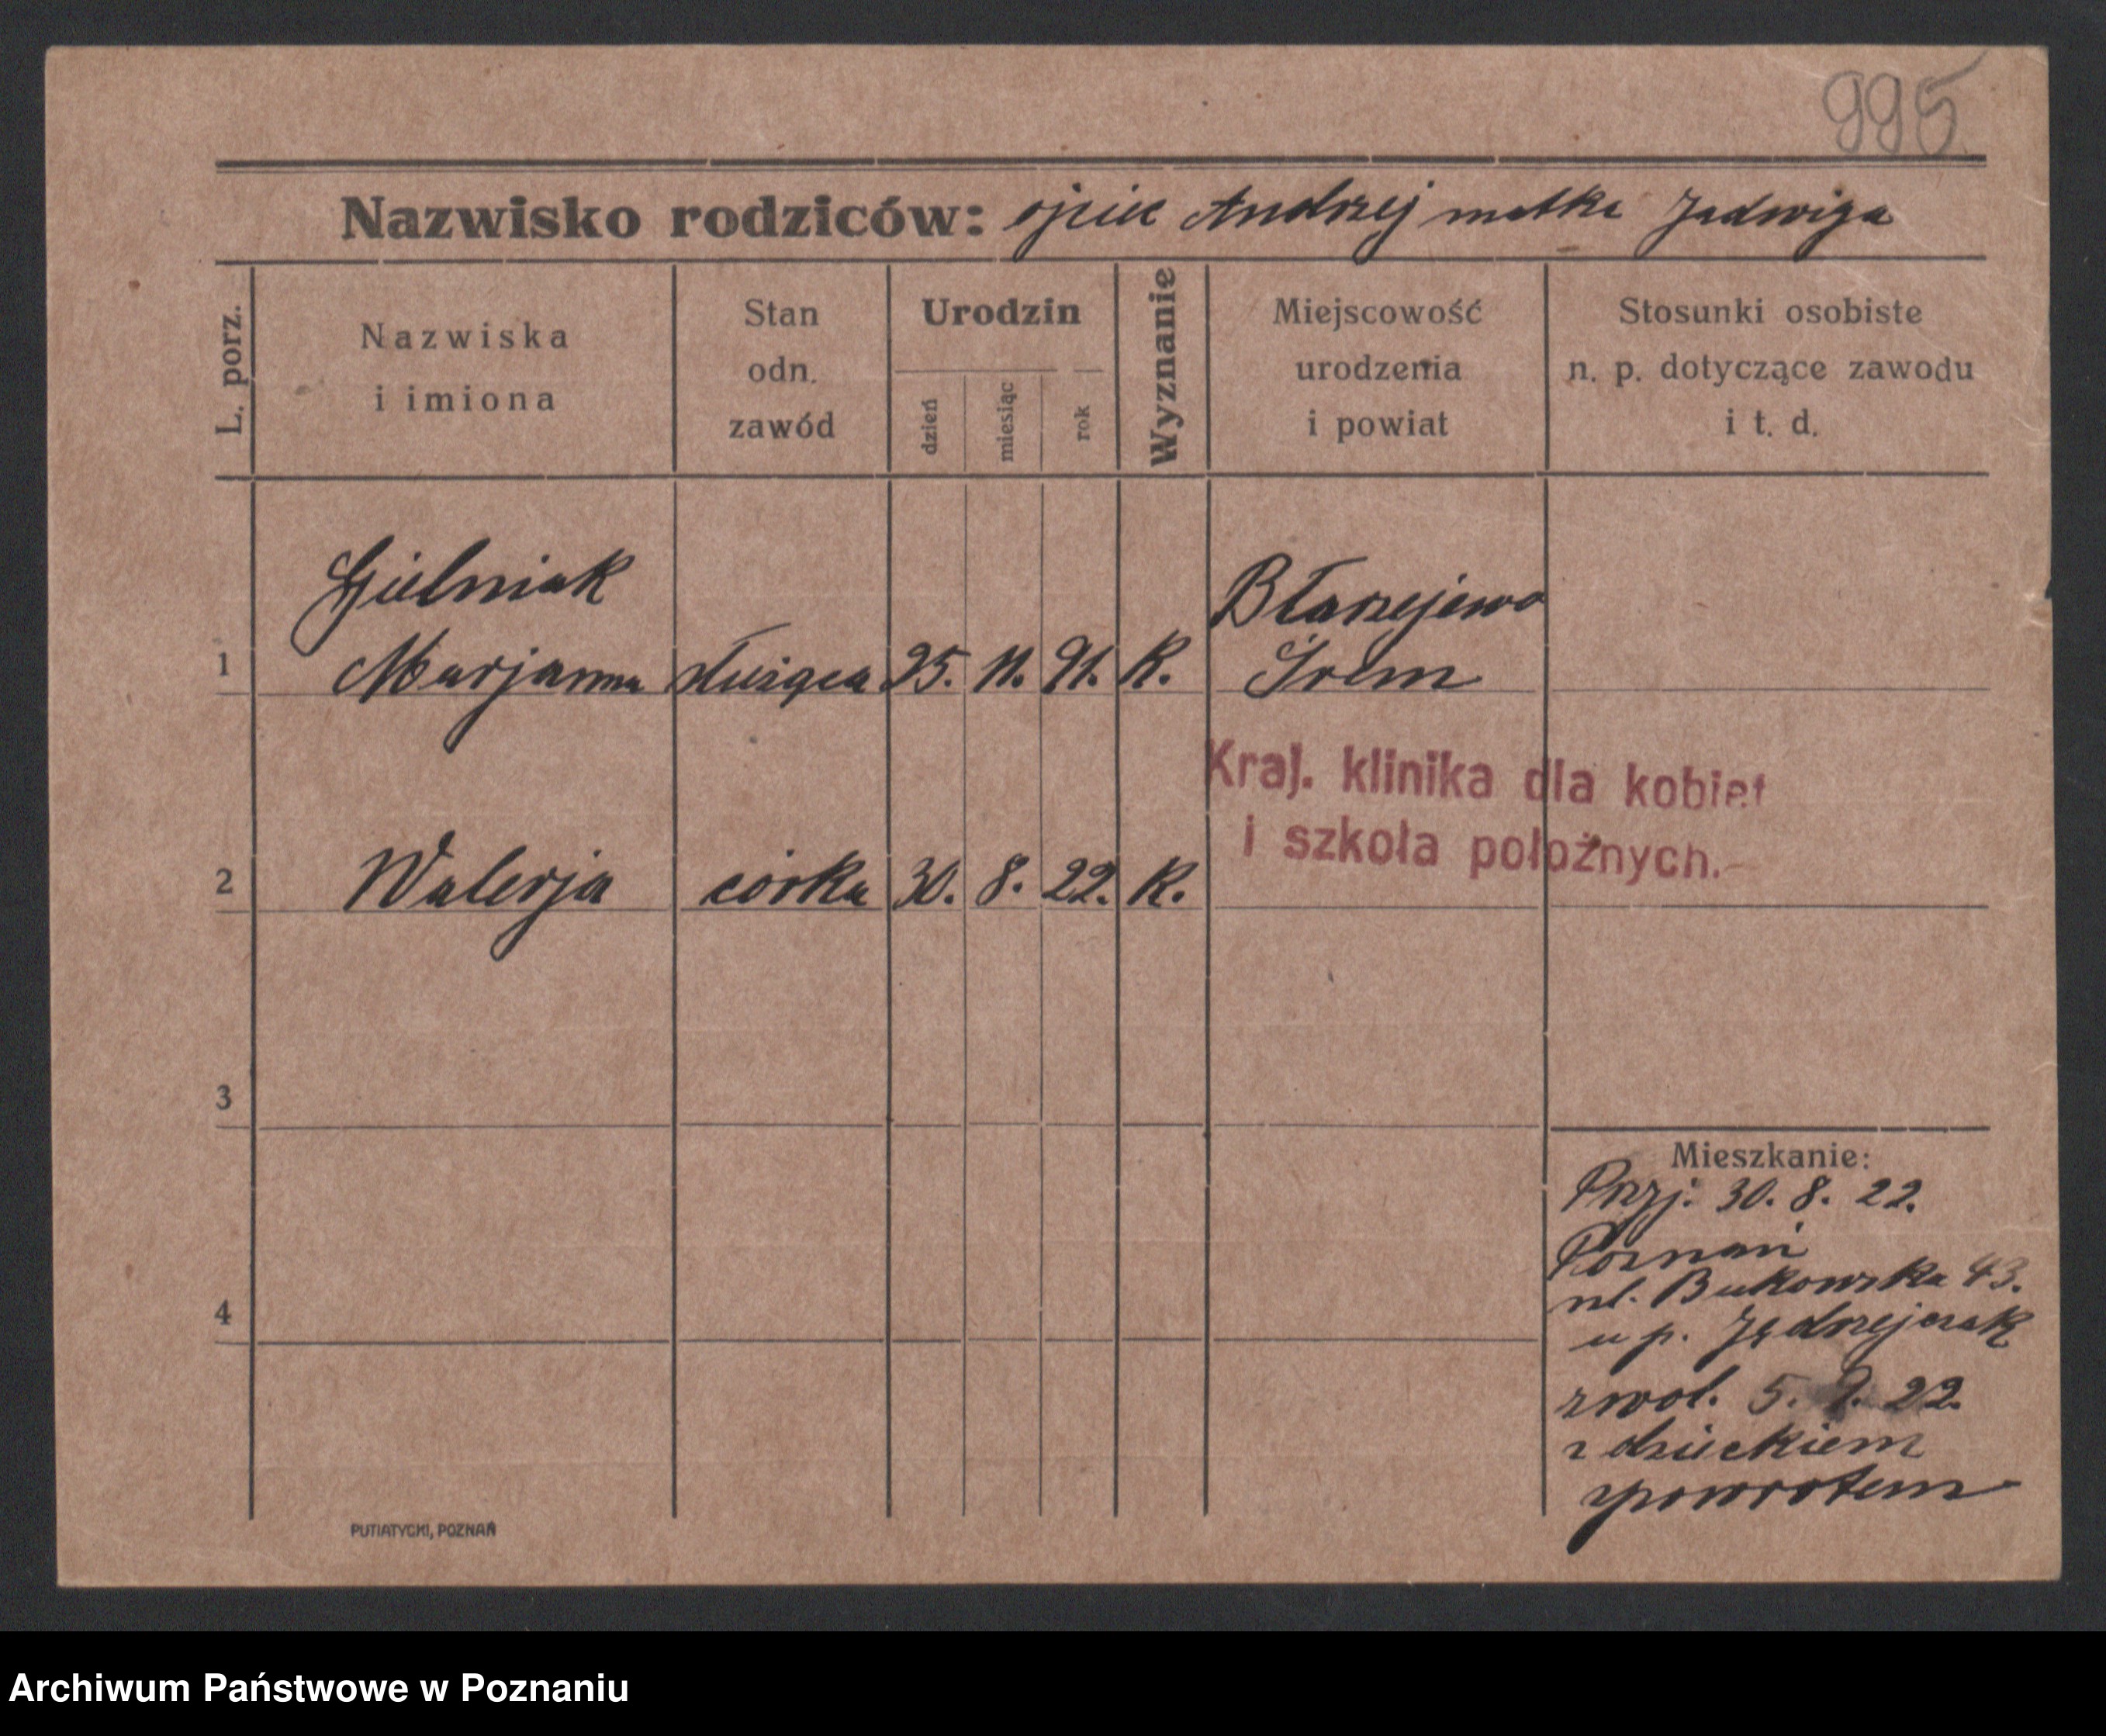 995
Nazwisko rodziców: ojciec Andrzej matka Jadwiga
L. porz.
Nazwiska
i imiona
Stan
odn.
zawód
Urodzin
dzień
miesiąc
rok
Wyznanie
Miejscowość
urodzenia
i powiat
Stosunki osobiste
n. p. dotyczące zawodu
i t. d.
Gielniak Błarzejewo
1 Marjanna służąca 25. 11. 91. K. Śrem
Kraj. klinika dla kobiet
i szkoła położnych.
2 Walerja córka 30. 8. 22. K.
3
4
Mieszkanie:
Przj. 30. 8. 22.
Poznań
ul. Bukowska 43.
u p. Jędrzejczak
zwol. 5. 9. 22.
z dzieckiem
zpowrotem
PUTIATYCKI, POZNAŃ
Archiwum Państwowe w Poznaniu